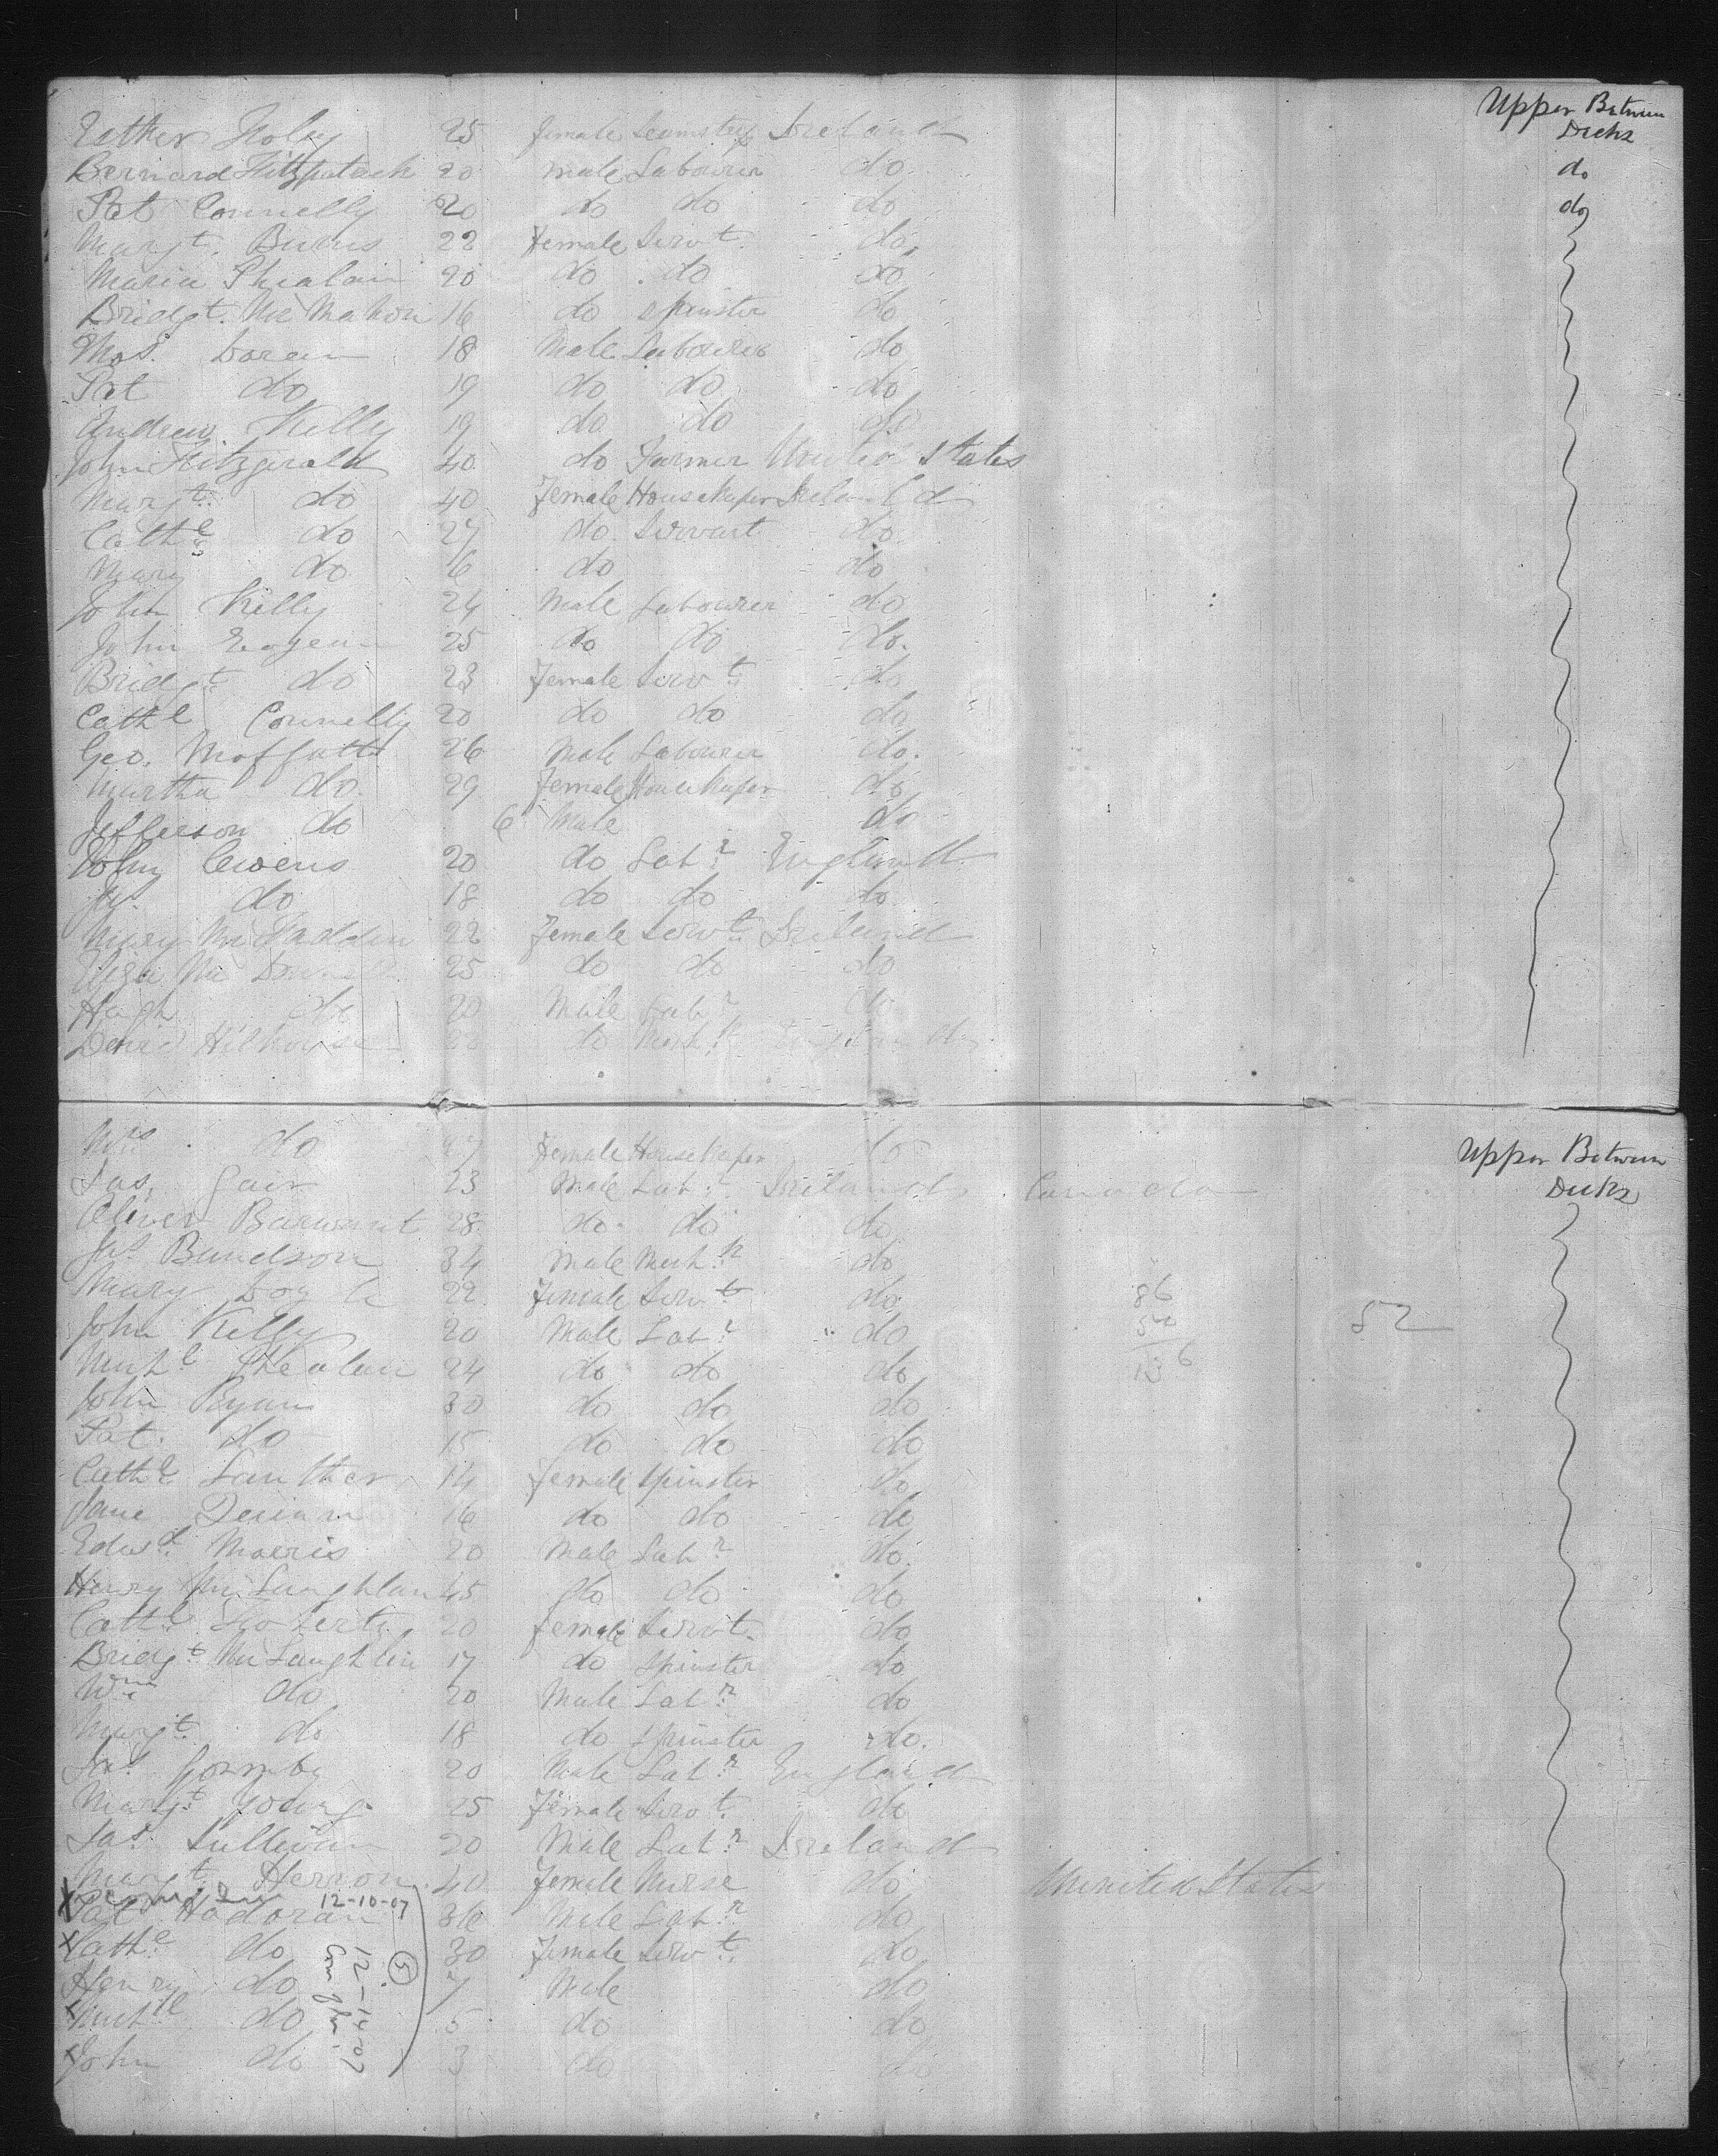 Esther Foley 25 female Seamstress Ireland Upper Between Decks
Bernard Fitzpatrick 20 male Labourer do. do
Pat Connelly 20 do do do do
Margt. Burns 22 Female Servt. do
Maria Phealan 20 do do do
Bridgt. McMahon 16 do spinster do
Thos. Doran 18 Male Labourer do
Pat do 19 do do do
Andrew Kelly 19 do do do
John Fitzgerald 40 do Farmer United States
Margt. do 40 Female Housekeeper Ireland
Cathe. do 27 do Servant do
Mary do 6 do do
John Kelly 24 Male Labourer do
John 25 do do do.
Bridgt. do 23 Female Servt. do
Cathe Connelly 20 do do do
Geo. Moffatt 26 Male Labourer do.
Martha do 29 Female Housekeeper do
Jefferson do 6 Male do
John Owens 20 do Labr. England
Jas. do 18 do do do
Mary McFadden 22 Female Servt. Ireland
Eliza Mc 25 do do do
Hugh do 20 Male Labr. do
David Hilhouse do
Mrs. do 27 Female Housekeeper do Upper Between Decks
Jas. Gair 23 Male Labr. Ireland Canada
Oliver 28 do do do
Jas. 34 Male Mechn. do
Mary Doyle 22 Female Servt do 86
John Kelly 20 Male Labr. do 50 52
Michl Phealan 24 do do do 136
John Ryan 30 do do do
Pat. do 15 do do do
Cathe 14 female spinster do
Jane 16 do do do
Edwd. Morris 20 Male Labr. do.
Henry McLaughlan 45 do do do
Cathe. 20 female Servt. do
Bridgt. McLaughlin 17 do spinster do
Wm. do 20 Male Labr. do
Margt. do 18 do spinster do.
Jas. Gormby 20 Male Labr. England
Margt. Young 25 Female Servt. do
Jas. Sullivan 20 Male Labr. Ireland
Margt. Herron 40 Female Nurse do United States
12-10-07
x Pat Hadoran 36 Male Labr. do
x Cathe. do 30 Female Servt. do
Henry do 7 Male do
x Michl do 5 do do
x John do 3 do do
5
12-14-07